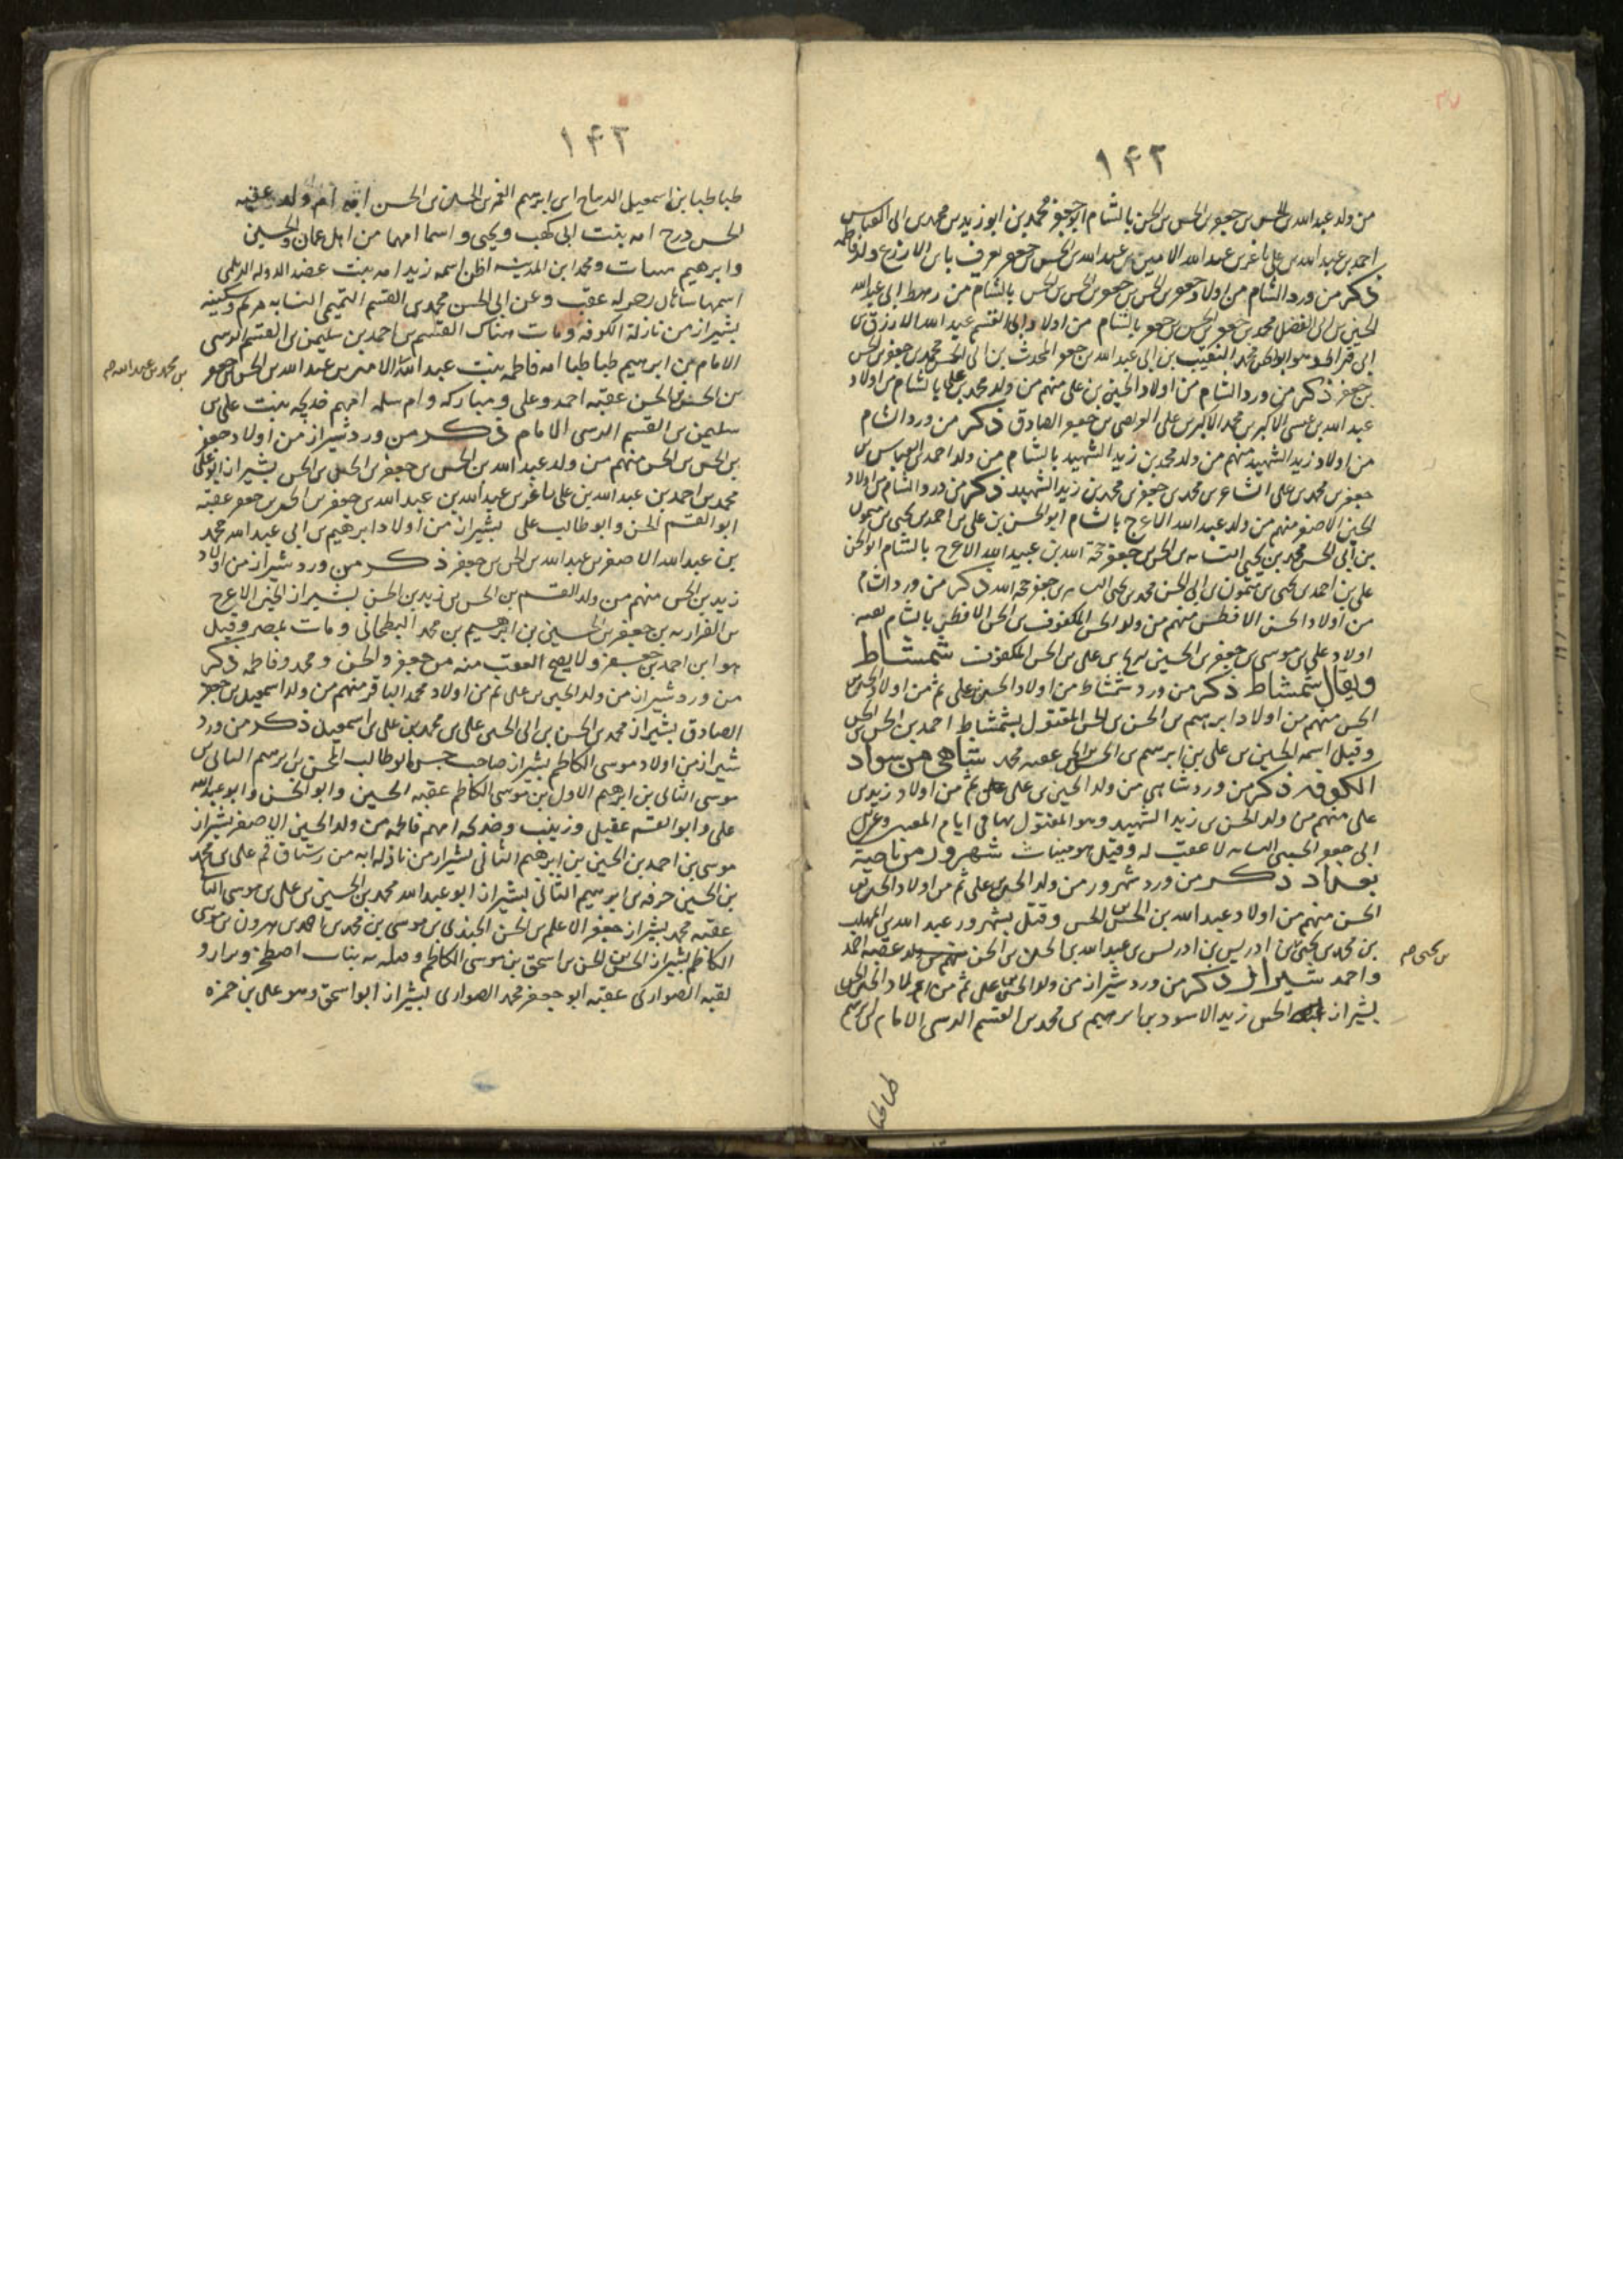 ١٤٢
من ولد عبدالله بن الحسن بن جعفر بن الحسن بن الحسن بالشام ابوجعفر محمد بن ابوزيد بن محمد بن ابى العباس
احمد بن عبدالله بن على باغر بن عبدالله الامير بن عبدالله بن الحسن بن جعفر يعرف بابن الازرع ولد فاطمه
ذكر من ورد الشام من اولاد جعفر بن الحسن بن جعفر بن الحسن بن الحسن بالشام من رهط ابى عبدالله
الحسين بن ابى الفضل محمد بن جعفر بن الحسن بن جعفر بالشام من اولاد ابى القسم عبدالله الازرق بن
ابى قيراط وهو ابوالحسن محمد النقيب بن ابى عبدالله بن جعفر المحدث بن ابى الحسن محمد بن جعفر بن الحسن
بن جعفر ذكر من ورد الشام من اولاد الحسين بن على منهم من ولد محمد بن على بالشام من اولاد
عبدالله بن عيسى الاكبر بن محمد الاكبر بن على العريضى بن جعفر الصادق ذكر من ورد الشام
من اولاد زيد الشهيد منهم من ولد محمد بن زيد الشهيد بالشام من ولد احمد بن العباس بن
جعفر بن محمد بن على الشاعر بن محمد بن جعفر بن محمد بن زيد الشهيد ذكر من ورد الشام من اولاد
الحسين الاصغر منهم من ولد عبيدالله الاعرج بالشام ابوالحسن بن على بن احمد بن يحيى بن ميمون
بن ابى الحسن محمد بن يحيى النسابه بن الحسن بن جعفر حجة الله بن عبيدالله الاعرج بالشام ابوالحسن
على بن احمد بن يحيى بن ميمون بن ابى الحسن محمد بن يحيى النسابه بن جعفر حجه الله ذكر من ورد الشام
من اولاد الحسن الافطس منهم من ولد الحسن المكفوف بن الحسن الافطس بالشام
اولاد على بن موسى بن جعفر بن الحسين بن على بن الحسن المكفوف شمشاط
ويقال سمشاط ذكر من ورد شمشاط من اولاد الحسن بن على ثم من اولاد الحسن بن
الحسن منهم من اولاد ابرهيم بن الحسن بن الحسن المقتول بشمشاط احمد بن الحسن بن الحسن
وقيل اسمه الحسين بن على بن ابرهيم بن الحسن بن الحسن عقبه محمد شاهى من سواد
الكوفه ذكر من ورد شاهى من ولد الحسين بن على ثم من اولاد زيد بن
على منهم من ولد الحسن بن زيد الشهيد وهو المقتول بها فى ايام المعتز وعن
ابى جعفر الحسينى النسابه لا عقب له وقيل هو مينات شهرور من ناحية
بغداد ذكر من ورد شهرور من ولد الحسن بن على ثم من اولاد الحسن بن
الحسن منهم من اولاد عبدالله بن الحسن بن الحسن وقتل بشهرور عبدالله بن المهلب
بن محمد بن يحيى بن ادريس بن ادريس بن عبدالله بن الحسن بن الحسن عقبه احمد
بن يحيى صح
واحمد شيراز ذكر من ورد شيراز من ولد الحسن بن على ثم من اولاد الحسن بن الحسن
بشيراز الحسن زيد الاسود بن ابرهيم بن محمد بن القسم الرسى الامام بن ابرهيم
طباطبا
١٤٣
طباطبا بن اسمعيل الديباج بن ابرهيم الغمر بن الحسن بن الحسن امه ام ولد عقبه
الحسن درج امه بنت ابى كهب ويحيى واسما امهما من اهل عمان والحسين
وابرهيم مينات ومحمد ابن المدينيه اظن اسمه زيد امه بنت عضد الدوله الديلمى
اسمها شاهان رحوله عقب وعن ابى الحسن محمد بن القسم التميمى النسابه مريم وسكينه
بشيراز من نازلة الكوفه ومات هناك القسم بن احمد بن سليمن بن القسم الرسى
الامام بن ابرهيم طباطبا امه فاطمه بنت عبدالله الامير بن عبدالله بن الحسن بن جعفر
بن محمد بن عبدالله صح
بن الحسن بن الحسن عقبه احمد وعلى ومباركه وام سلمه امهم خديجه بنت على بن
سليمن بن القسم الرسى الامام ذكر من ورد شيراز من اولاد جعفر
بن الحسن بن الحسن منهم من ولد عبدالله بن الحسن بن جعفر بن الحسن بن الحسن بشيراز ابوعلى
محمد بن احمد بن عبدالله بن على باغر بن عبيدالله بن عبدالله بن جعفر بن الحسن بن جعفر عقبه
ابوالقسم الحسن وابوطالب على بشيراز من اولاد ابرهيم بن ابى عبدالله محمد
بن عبدالله الاصغر بن عبدالله بن الحسن بن جعفر ذكر من ورد شيراز من اولاد
زيد بن الحسن منهم من ولد القسم بن الحسن بن زيد بن الحسن بشيراز الحسين الاعرج
بن الفزاريه بن جعفر بن الحسين بن ابرهيم بن محمد البطحانى ومات بمصر وقيل
هو ابن احمد بن جعفر ولا يصح العقب منه من جعفر والحسن ومحمد وفاطمه ذكر
من ورد شيراز من ولد الحسين بن على ثم من اولاد محمد الباقر منهم من ولد اسمعيل بن جعفر
الصادق بشيراز محمد بن الحسن بن ابى الحسن على بن محمد بن على بن اسمعيل ذكر من ورد
شيراز من اولاد موسى الكاظم بشيراز صاحب حبس ابوطالب المحسن بن ابرهيم الثانى بن
موسى الثانى بن ابرهيم الاول بن موسى الكاظم عقبه الحسين وابوالحسن وابوعبدالله
على وابوالقسم عقيل وزينب وخديجه امهم فاطمه من ولد الحسين الاصغر بشيراز
موسى بن احمد بن الحسين بن ابرهيم الثانى بشيراز من ناذلة ابه من رستاق قم على بن محمد
بن الحسين خرفه بن ابرهيم الثانى بشيراز ابوعبدالله محمد بن الحسين بن على بن موسى الثانى
عقبه محمد بشيراز جعفر الاعلم بن الحسن الجندى بن موسى بن محمد بن احمد بن هرون بن موسى
الكاظم بشيراز الحسن بن الحسن بن اسحق بن موسى الكاظم بباب اصطخر
لقبه الصوارى عقبه ابوجعفر محمد الصوارى بشيراز ابواسحق وهو على بن حمزه